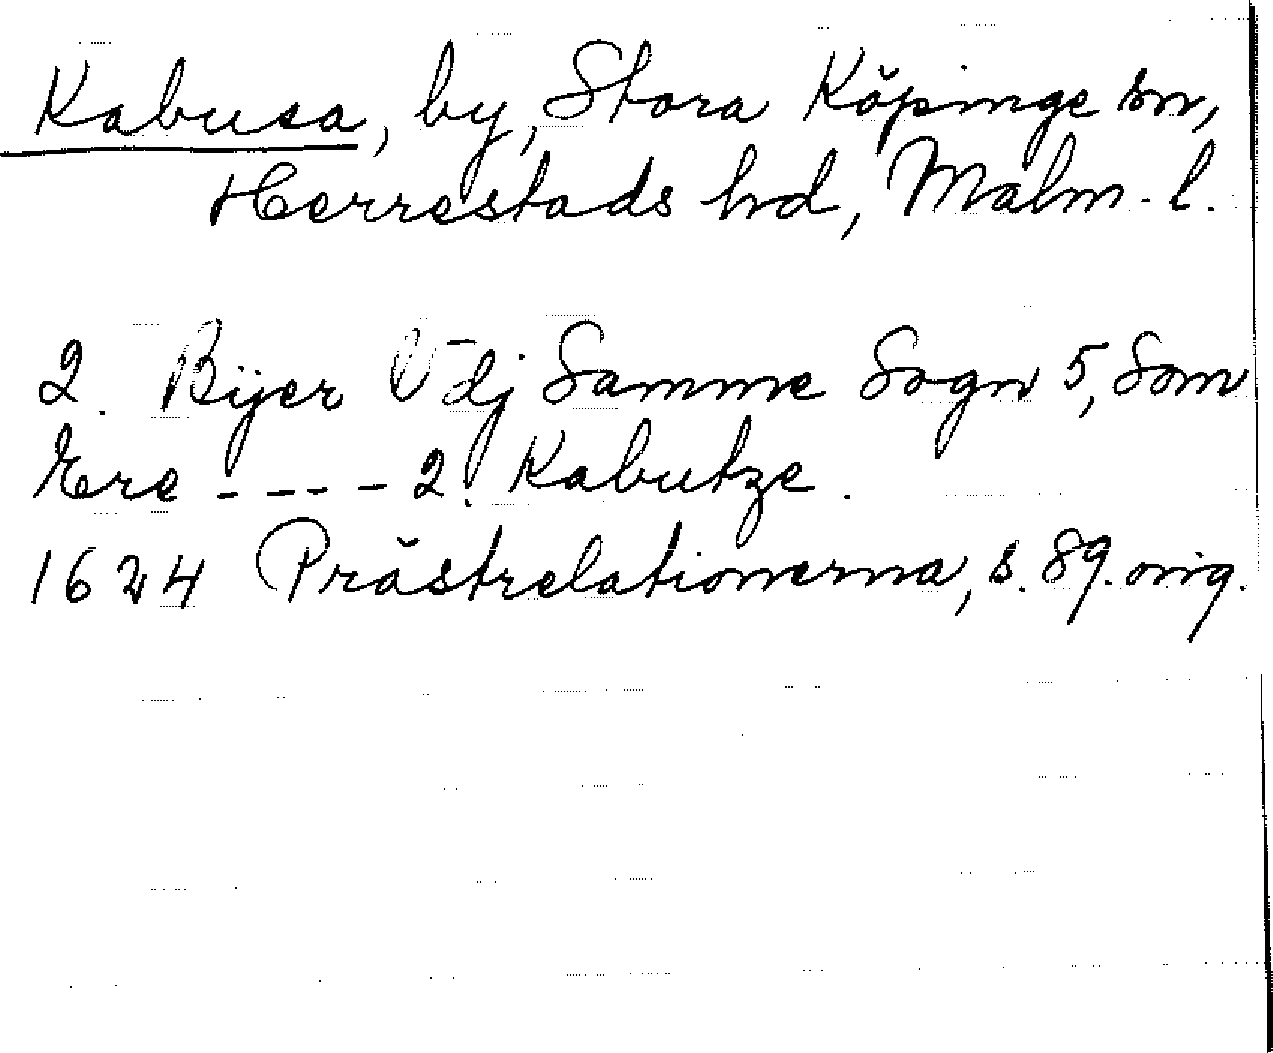 Kabusa, by, Stora Köpinge sn,
Herrestads hd, Malm. l.
2. Bÿer Vdj Samme Sogn 5, Som
Ere - - - - 2. Kabutze.
1624 Prästrelationerna, s. 89. orig.